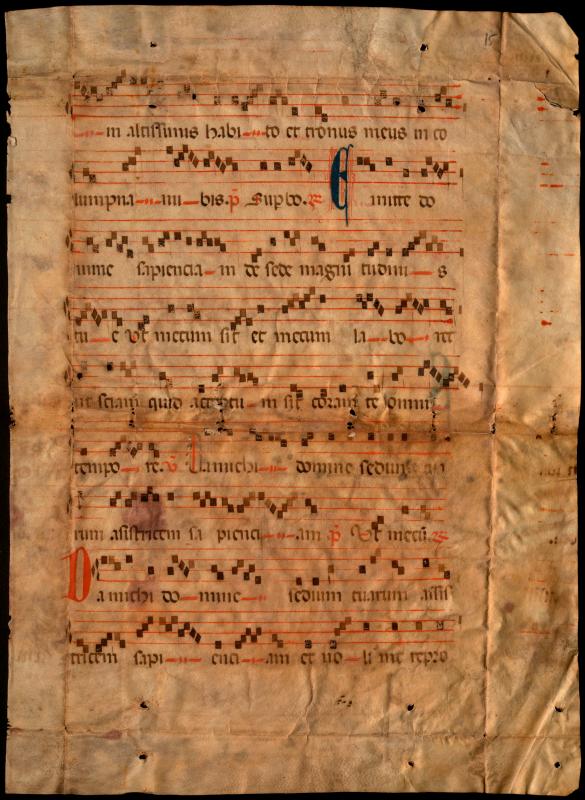 15
in altissimis habi to et tronus meus in co
lumpna nu bis. p Sup bo. R Emitte do
mine sapiencia m de sede magni tudini s
tu e Vt mecum sit et mecum la bo ret
ut sciam quid acceptu m sit coram te omni
tempo re. V Da michi domine sedium tua
rum asistricem sa pienci am p Vt mecū. R
Da michi do mine sedium tuarum assis
tricem sapi enci am et no li me repro